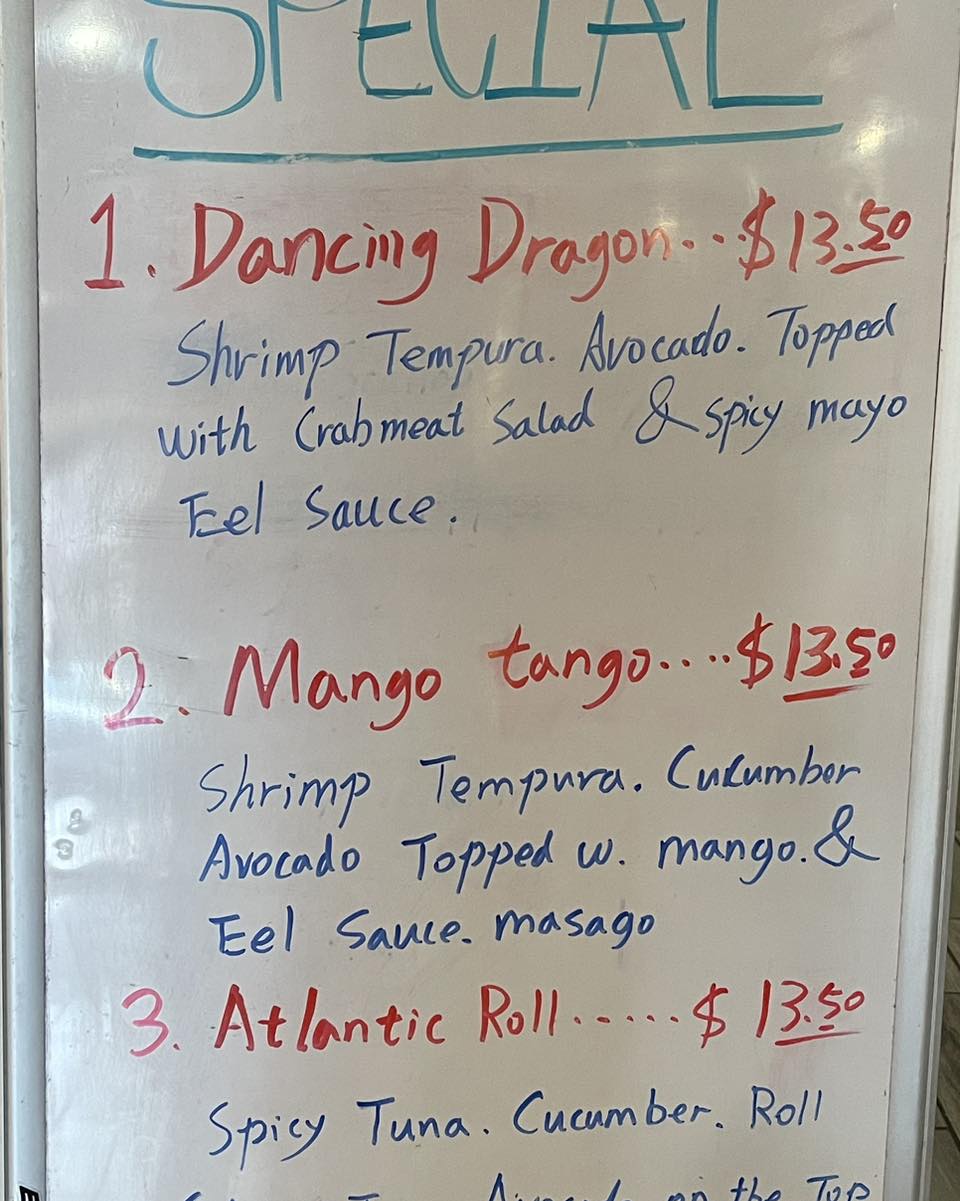 SPECIAL
1. Dancing Dragon...$13.50
Shrimp Tempura. Avocado. Topped
with Crabmeat Salad & spicy mayo
Eel Sauce.
2. Mango tango....$13.50
Shrimp Tempura. Cucumber
Avocado Topped w. mango. &
Eel Sauce. masago
3. Atlantic Roll.....$13.50
Spicy Tuna. Cucumber. Roll
on the Top